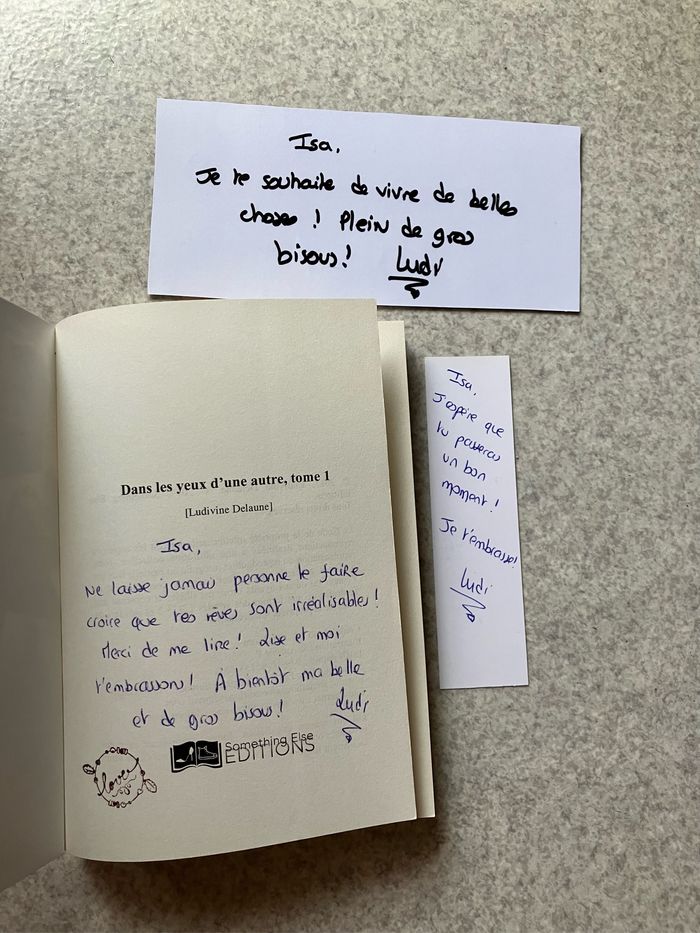 Isa,
Je te souhaite de vivre de belles
choses ! Plein de gros
bisous ! Ludi
Dans les yeux d'une autre, tome 1
[Ludivine Delaune]
Isa,
Ne laisse jamais personne te faire
croire que tes rêves sont irréalisables !
Merci de me lire ! Lise et moi
t'embrassons ! À bientôt ma belle
et de gros bisous ! Ludi
love
Something Else
EDITIONS
Isa,
J'espère que
tu passeras
un bon
moment !
Je t'embrasse !
Ludi